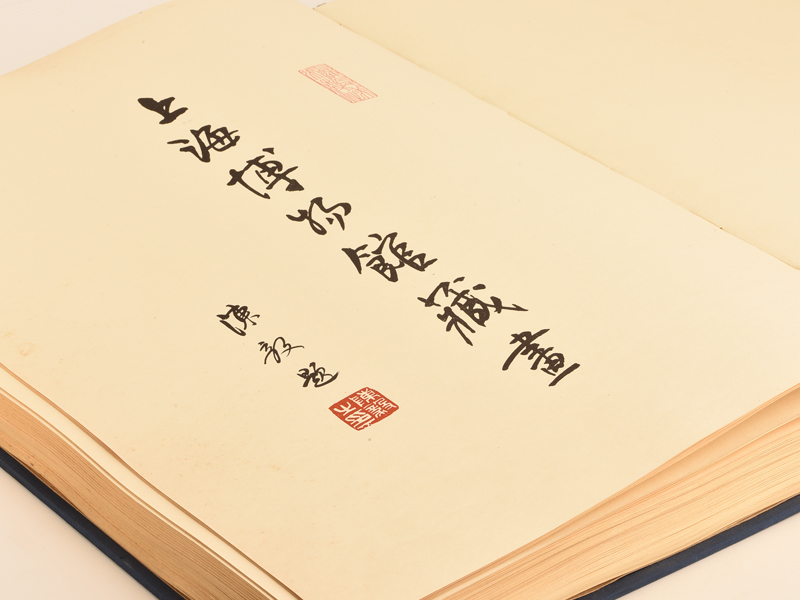 上海博物館藏畫
陳毅題